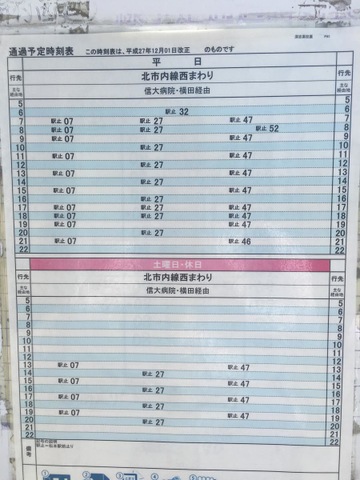 通過予定時刻表 この時刻表は、平成27年12月01日改正 のものです
平 日
行先 北市内線西まわり 行先
主な経由地 信大病院・横田経由 主な経由地
5 5
6 駅止 32 6
7 駅止 07 駅止 27 駅止 47 7
8 駅止 07 駅止 27 駅止 52 8
9 駅止 07 駅止 47 9
10 駅止 27 10
11 駅止 07 駅止 47 11
12 駅止 27 12
13 駅止 07 駅止 47 13
14 駅止 27 14
15 駅止 07 駅止 47 15
16 駅止 27 16
17 駅止 07 駅止 27 駅止 47 17
18 駅止 07 駅止 27 駅止 47 18
19 駅止 07 駅止 47 19
20 駅止 27 20
21 駅止 07 駅止 46 21
22 22
土曜日・休日
行先 北市内線西まわり 行先
主な経由地 信大病院・横田経由 主な経由地
5 5
6 6
7 7
8 8
9 9
10 10
11 11
12 12
13 駅止 07 駅止 47 13
14 駅止 27 14
15 駅止 07 駅止 47 15
16 駅止 27 16
17 駅止 07 駅止 47 17
18 駅止 27 18
19 駅止 07 駅止 47 19
20 駅止 27 20
21 21
22 22
備考